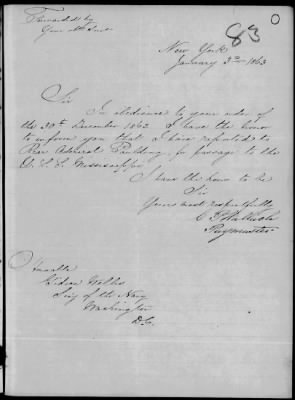 Forwarded by
83
New York
January 3rd 1863
Sir
In obedience to your order of
the 30th December 1862 I have the honor
to inform you that I have reported to
Rear Admiral Paulding, for passage to the
U.S.S. Mississippi
I have the honor to be
Sir
Yours most respectfully
Paymaster
Honorable
Gideon Welles
Secy of the Navy
Washington
D.C.